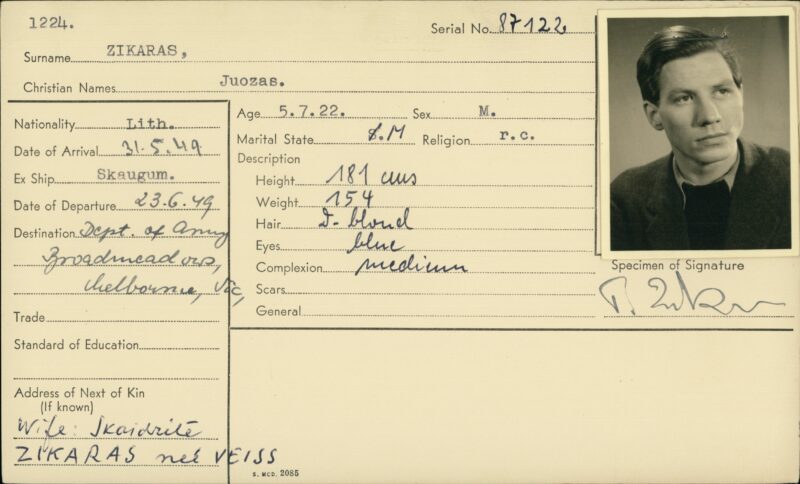 1224.
Serial No. 87122
Surname ZIKARAS,
Christian Names Juozas.
Nationality Lith.
Date of Arrival 31.5.49
Ex Ship Skaugum.
Date of Departure 23.6.49
Destination Dept. of Army
Broadmeadows,
Melbourne, Vic,
Trade
Standard of Education
Address of Next of Kin
(If known)
Wife: Skaidrite
ZIKARAS neé VEISS
Age 5.7.22. Sex M.
Marital State M Religion r.c.
Description
Height 181 cms
Weight 154
Hair D- blond
Eyes blue
Complexion medium
Scars
General
Specimen of Signature
S. MCD. 2085